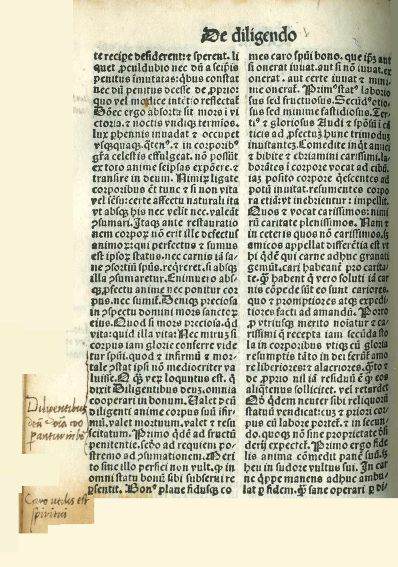 De diligendo
te recipe desiderent: et sperent. li
quet proculdubio nec dum a seipsis
penitus immutatas: quibus constat
nec dum penitus deesse de proprio
quo vel modice intentio reflectat.
Donec ergo absorta sit mors i vi
ctoria. et noctis undique terminos.
lux phennis invadat et occupet
usquequaque. quatenus et in corporibus
gloria celestis effulgeat. non possunt
ex toto anime seipsas exponere. et
transire in deum. Nimirum ligate
corporibus etiam tunc et si non vita
vel sensu: certe affectu naturali ita
ut absque his nec velit nec. valeant
consumari. Itaque ante restauratio
nem corporum non erit ille defectus
animorum: qui perfectus et summus
est ipsorum status. nec carnis iam sa
ne consortium spiritus. requireret. si absque
illa consumaretur. Enimvero abs
que profectu anime nec ponitur cor
pus. nec sumitur. Denique preciosa
in conspectu domini mors sanctorum
eius. Quod si mors preciosa. quid
vita: quid illa vite: Nec mirum si
corpus iam glorie conferre vide
tur spiritui. quod et infirmum et mor
tale constat ipsi non mediocriter va
luisse. O quam verum loquutus est. qui
dixit Diligentibus deum. omnia
cooperari in bonum. Valet deum
diligenti anime corpus suum infir
mum. valet mortuum. valet et resu
scitatum. Primo quidem ad fructum
penitentie. secundo ad requiem po
stremo ad consumationem. Meri
to sine illo perfici non vult. quod in
omni statu bonum sibi subservire
persentit. Bonus plane fidusque co
mes caro spiritui bono. que ipsum aut
si onerat iuvat. aut si non iuvat. ex
onerat. aut certe iuvat et mini
me onerat. Primus status laborio
sus sed fructuosus. Secundus otio
sus sed minime fastidiosus. Ter
tius et gloriosus Audi et sponsum i
ticis ad profectum hunc trimodum
invitantes. Comedite inquit amici
et bibite et inebriamini carissimi. la
borantes i corpore vocat ad cibum.
iam posito corpore quiescentes ad
potum invitat. resumentes corpo
ra etiam ut inebrientur impellit.
Quos et vocat carissimos: nimi
rum caritate plenissimos. Nam et
in ceteris quos non carissimos. sed
amicos appellat differentia est ut
hi quidem qui carne adhuc gravati
gemunt. cari habeantur pro carita
te. qui habent qui vero soluti iam car
nis compede sunt eo sunt cariores.
quo et promptiores atque expedi
tiores facti ad amandum. Porro
pro utrisque merito nominantur et ca
rissimi qui recepta iam secunda sto
la in corporibus utique cum gloria
resumptis tanto in dei feruntur amo
re liberiores et alacriores. quanto
de proprio nil iam residuum est quod eos
aliquatenus solicitet. vel retardet.
Quod quidem neuter sibi reliquorum
statuum vendicat: cum et priori cor
pus cum labore portetur. et in secundo.
quoque non sine proprietate desi
derii expectetur. Primo ergo fide
lis anima comedit panem suum. sed
heu in sudore vultus sui. In car
ne quippe manens adhuc ambu
lat per fidem. quam sane operari per di
Diligentibus
deum omnia coo
pantur in bo
Caro utilis est
spiritui